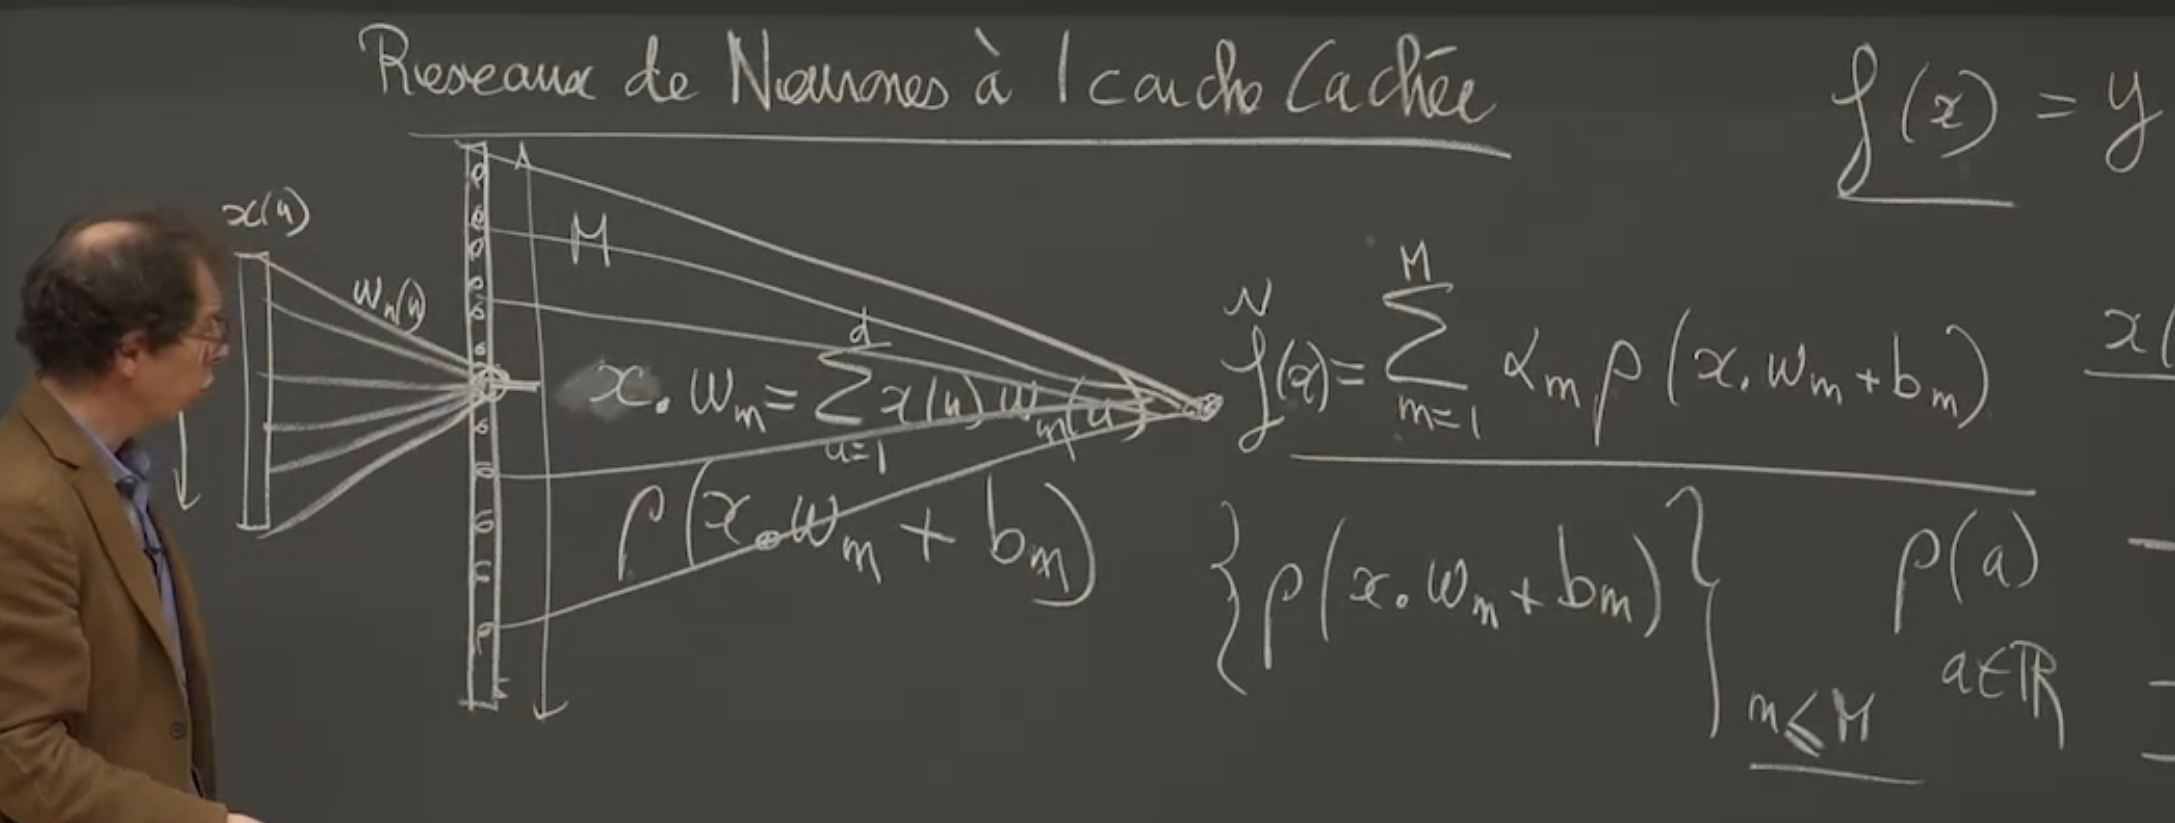 Reseaux de Neurones à 1 couche Cachée
f(x) = y
x(u)
w_m(u)
M
x . w_m = \sum_{u=1}^{d} x(u) w_m(u)
ρ(x . w_m + b_m)
\tilde{f}(x) = \sum_{m=1}^{M} α_m ρ(x . w_m + b_m)
x(
{ρ(x . w_m + b_m)}_{m ≤ M}
ρ(a)
a ∈ ℝ